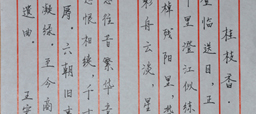 桂枝香·
登临送目，正
里澄江似练
棹残阳里，
彩舟云淡，星
念往昔繁华
悲恨相续，千
辱。六朝旧
凝绿。至今商
遗曲。 王安